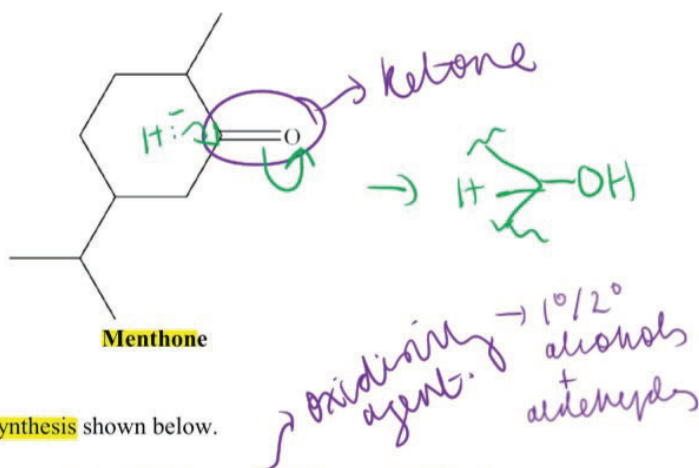 ketone
H:⁻
O
→ H -OH
Menthone
oxidising → 1°/2°
agent. alcohols
+
aldehydes
ynthesis shown below.